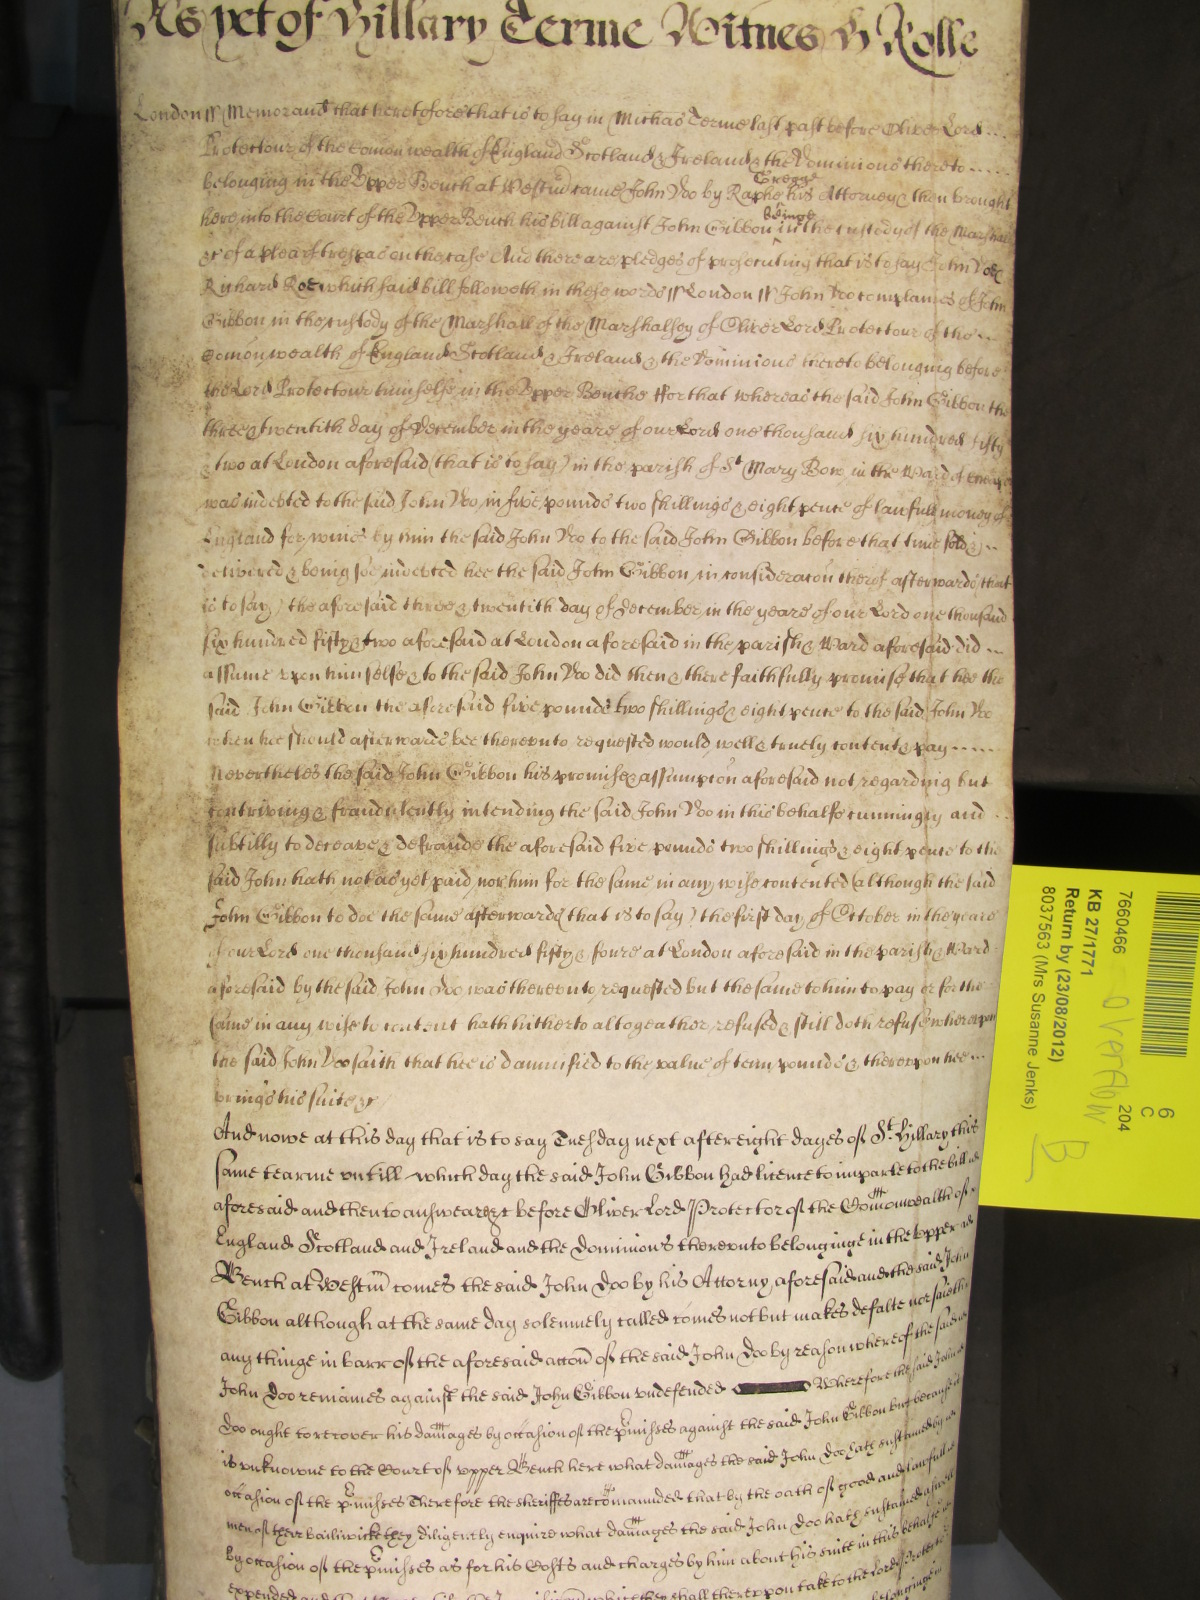 As yet of Hillary Terme Witnes H Rolle
London ss Memorand that heretofore that is to say in Michas Terme last past before Oliver Lord
Protectour of the Comonwealth of England Scotland & Ireland & the Dominions thereto
belonging in the Upper Bench at Westm came John Doo by Raphe Gregge his Attorney & then brought
here into the Court of the Upper Bench his bill against John Gibbon in the custody of the Marshall
&c of a plea of trespas on the case And there are pledges of prosecuting that is to say John Doe &
Richard Roe which said bill followeth in these words ss London ss John Doo complaines of John
Gibbon in the custody of the Marshall of the Marshalsey of Oliver Lord Protectour of the
Comonwealth of England Scotland & Ireland & the Dominions thereto belonging before
the Lord Protectour himselfe in the Upper Benche ffor that whereas the said John Gibbon the
three & twentith day of December in the yeare of our Lord one thousand six hundred fifty
& two at London aforesaid (that is to say) in the parish of St Mary Bow in the Ward of
was indebted to the said John Doo in five pounds two shillings & eight pence of lawfull money of
England for wines by him the said John Doo to the said John Gibbon before that time sold &
delivered & being soe indebted hee the said John Gibbon in consideracon therof afterwards (that
is to say) the aforesaid three & twentith day of December in the yeare of our Lord one thousand
six hundred fifty & two aforesaid at London aforesaid in the parish & Ward aforesaid did
assume upon himselfe & to the said John Doo did then & there faithfully promise that hee the
said John Gibbon the aforesaid five pounds two shillings & eight pence to the said John Doo
when he should afterwards bee thereunto requested would well & truely content & pay
Nevertheles the said John Gibbon his promise & assumpcon aforesaid not regarding but
contriving & fraudulently intending the said John Doo in this behalfe cunningly and
subtilly to deceave & defraude the aforesaid five pounds two shillings & eight pence to the
said John hath not as yet paid nor him for the same in any wise contented (although the said
John Gibbon to doe the same afterwards (that is to say) the first day of October in the yeare
of our Lord one thousand six hundred fifty & foure at London aforesaid in the parish & Ward
aforesaid by the said John Doo was thereunto requested but the same to him to pay or for the
same in any wise to content hath hitherto altogeather refused & still doth refuse whereupon
the said John Doo saith that hee is damnified to the value of tenn pounds & thereupon hee
brings his suite &c
And nowe at this day that is to say Tuesday next after eight dayes of St Hillary this
same tearme untill which day the said John Gibbon had licence to imparle to the bill
aforesaid and then to answeare &c before Oliver Lord Protector of the Comonwealth of
England Scotland and Ireland and the Dominions thereunto belonginge in the Upper
Bench at Westm comes the said John Doo by his Attorny aforesaid and the said John
Gibbon although at the same day solemnely called comes not but makes defalte nor saieth
any thinge in barr of the aforesaid accon of the said John Doo by reason whereof the said
John Doo remaines against the said John Gibbon undefended Wherefore the said John
Doo ought to recover his damages by occasion of the pmisses against the said John Gibbon but because it
is unknowne to the Court of upper Bench here what damages the said John Doo hath susteined by
occasion of the pmisses Therefore the sheriffes are comaunded that by the oath of good and lawfull
men of their bailiwicke they diligently enquire what damages the said John Doo hath susteined
by occasion of the pmisses as for his Costs and charges by him about his suite in this behalfe
expended and shall thereupon take to the Lord Protector
belonginge in
6
C
204
7660466
overflow
KB 27/1771
Return by (23/08/2012)
8037563 (Mrs Susanne Jenks)
B